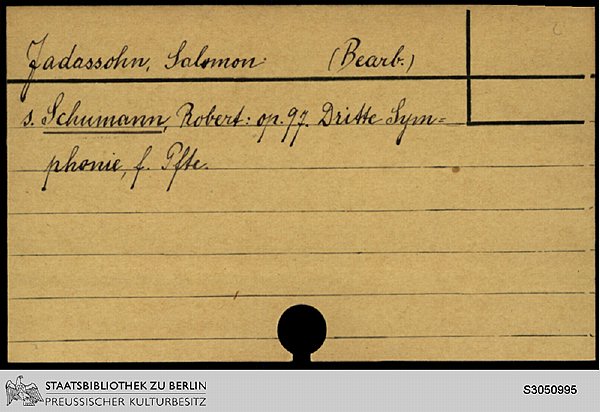 Jadassohn, Salomon: (Bearb.)
s. Schumann, Robert: op. 97. Dritte Sym=
phonie, f. Pfte.
STAATSBIBLIOTHEK ZU BERLIN
PREUSSISCHER KULTURBESITZ
S3050995